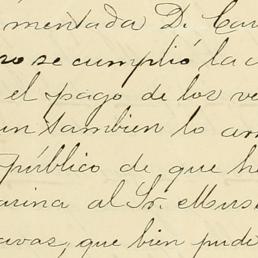 mentada D. Car
no se cumplió la c
el pago de los ve
un tambien lo am
público de que h
arina al Sr. Mus
avas, que bien pudi